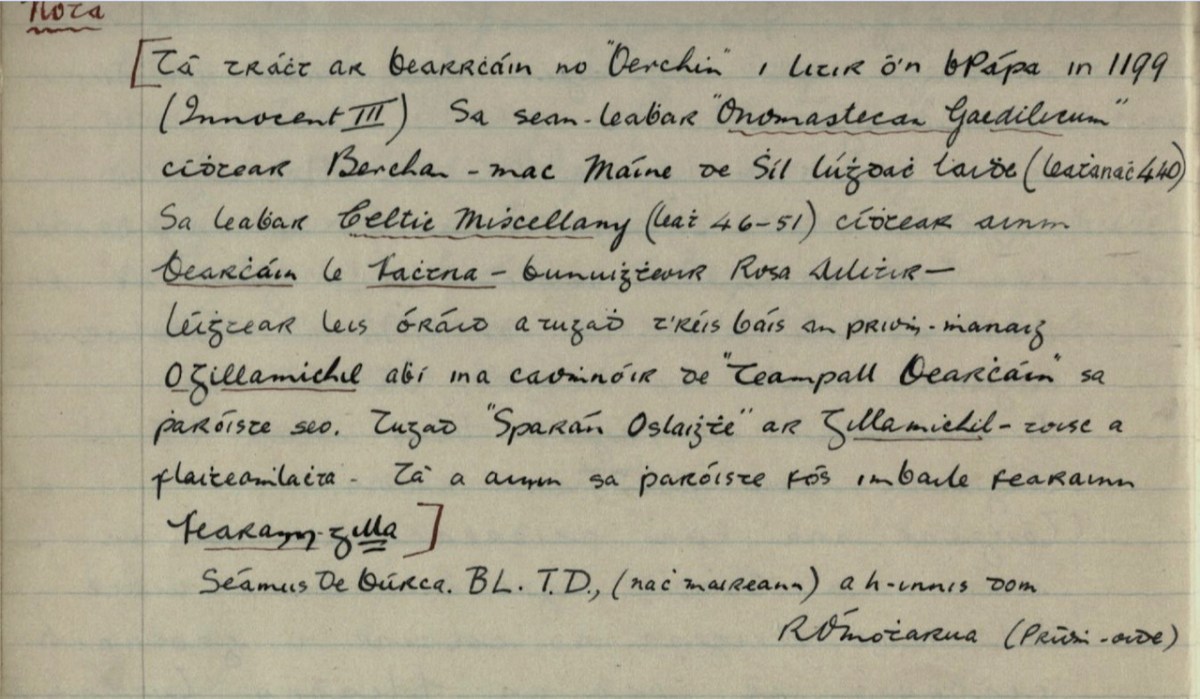 Nóta
[Tá tráċt ar Ḃearrċáin no "Berchin" i litir ó'n bPápa in 1199
(Innocent III) Sa sean-leabar "Onomastecan Gaedilicum"
cíḋtear Berchan - mac Máine de Síl lúiġdaċ laiḋe (leaṫanaċ 440)
Sa leaḃar Celtic Miscellany (leaṫ 46-51) cíḋtear ainm
Bearċáin le Faċtna - bunuiġṫeoir Rosa Ailitir -
léiġtear leis óráid a tugaḋ t'réis báis an prioṁ-ṁanaiġ
OGillamichil aḃí ina ċaoṁnóir de "Teampall Ḃearċáin" sa
ṗaróiste seo. Tugaḋ "Sparán Oslaigṫe" ar Gillamichil - toisc a
ḟlaiṫeaṁlaċta - Tá a ainm sa ṗaróiste fós imbaile fearainn
Fearann-gilla]
Séamus De Búrca. B.L. T.D., (naċ maireann) a h-innis dom
R Ó Moċarua (Príoṁ-oide)